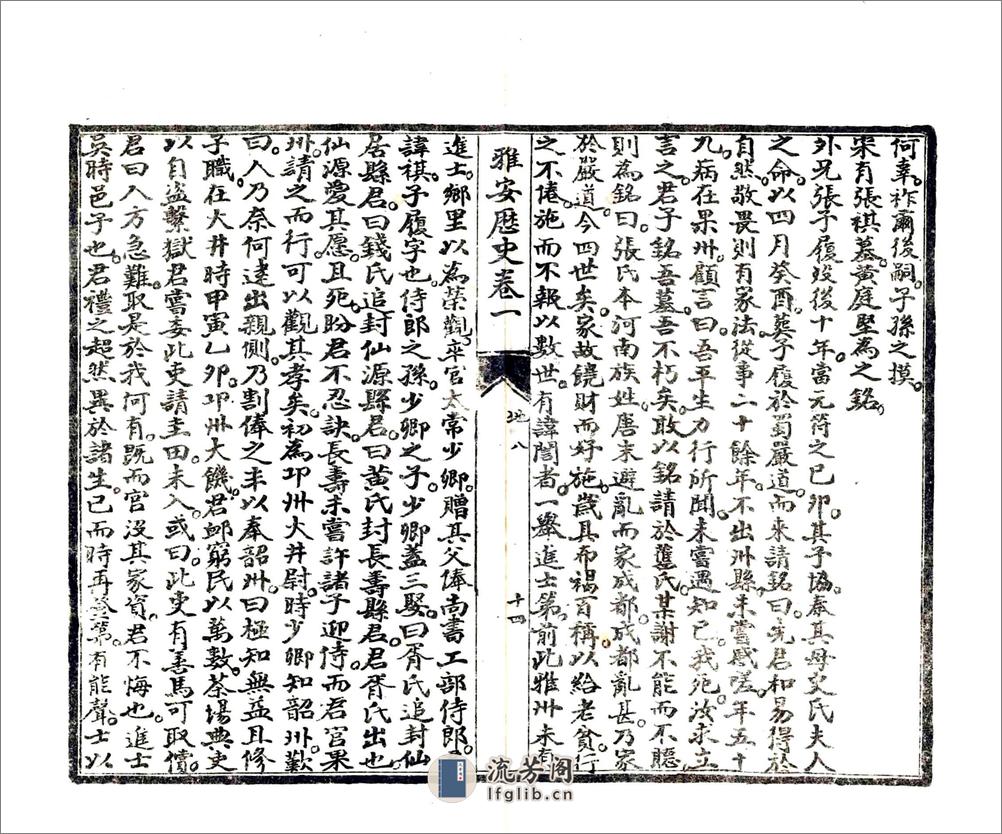 何辜祚爾後嗣子孫之摸。
宋有張祺墓黃庭堅為之銘。
外兄張子履歿後十年當元符之己卯其子協奉其母史氏夫人
之命以四月癸酉葬子履於蜀嚴道而來請銘曰先君和易得於
自然敬畏則有家法從事二十餘年不出州縣未嘗感嗟年五十
九病在果州顧言曰吾平生力行所聞未嘗遇知己我死汝求立
言之君子銘吾墓吾不朽矣敢以銘請於龔氏某謝不能而不聽
則為銘曰張氏本河南族姓唐末避亂而家成都成都亂甚乃家
於嚴道今四世矣家故饒財而好施歲具布褐百稱以給老貧行
之不倦施而不報以數世有諱誾者一舉進士第前此雅州未有
雅安歷史卷一
地八
十四
進士鄉里以為榮觀卒官太常少卿贈其父俸尚書工部侍郎
諱祺子履字也侍郎之孫少卿之子少卿蓋三娶曰胥氏追封仙
居縣君曰錢氏追封仙源縣君曰黃氏封長壽縣君君胥氏出也
仙源愛其愿且死盼君不忍訣長壽未嘗許諸子迎侍而君官果
州請之而行可以觀其孝矣初為邛州火井尉時少卿知韶州歎
曰人乃奈何違出親側乃割俸之半以奉韶州曰極知無益且修
子職在火井時甲寅乙卯邛州大饑君邮窮民以萬數茶場典吏
以自盜繫獄君嘗委此吏請圭田未入或曰此吏有善馬可取償
君曰人方急難取是於我何有既而官沒其家資君不悔也進士
吳時邑子也君禮之超然異於諸生已而時再登第有能聲士以
流芳阁
lfglib.cn